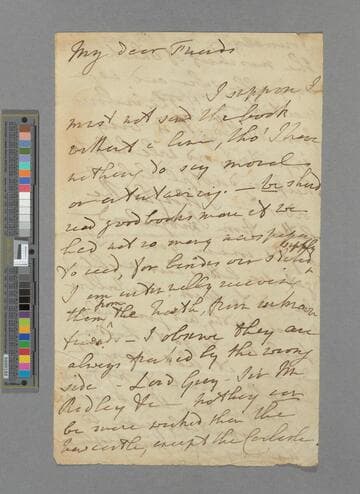 My dear Friends
I suppose I
must not send the book
without a line, tho' I have
nothing to say moral
or entertaining. — We shd
read good books more if we
had not so many newspapers
to read, for besides our
I am internally receiving
them from the North, from unknown
friends — I observe they are
always by the wrong
side — Lord Grey — Sir M
Ridley &c nothing can
be more wicked than the
Newcastle, except the Carlisle.